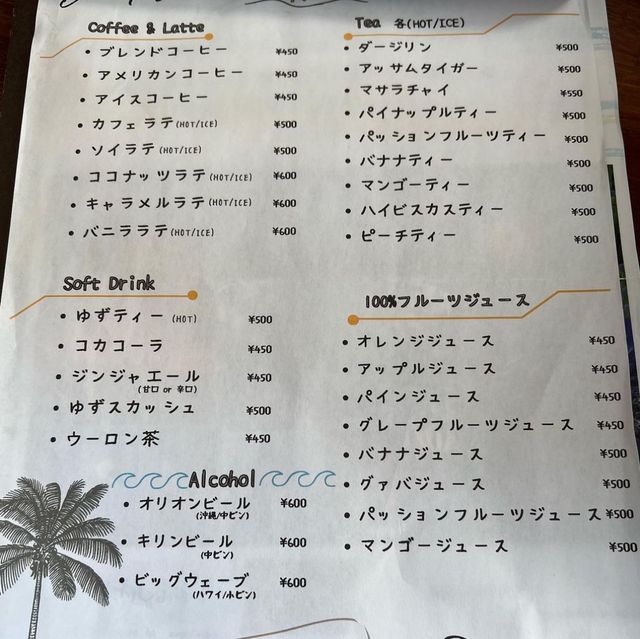 Coffee & Latte
・ブレンドコーヒー ¥450
・アメリカンコーヒー ¥450
・アイスコーヒー ¥450
・カフェラテ(HOT/ICE) ¥500
・ソイラテ(HOT/ICE) ¥500
・ココナッツラテ(HOT/ICE) ¥600
・キャラメルラテ(HOT/ICE) ¥600
・バニララテ(HOT/ICE) ¥600
Tea 各(HOT/ICE)
・ダージリン ¥500
・アッサムタイガー ¥500
・マサラチャイ ¥550
・パイナップルティー ¥500
・パッションフルーツティー ¥500
・バナナティー ¥500
・マンゴーティー ¥500
・ハイビスカスティー ¥500
・ピーチティー ¥500
Soft Drink
・ゆずティー(HOT) ¥500
・コカコーラ ¥450
・ジンジャエール ¥450
(甘口 or 辛口)
・ゆずスカッシュ ¥500
・ウーロン茶 ¥450
100%フルーツジュース
・オレンジジュース ¥450
・アップルジュース ¥450
・パインジュース ¥450
・グレープフルーツジュース ¥450
・バナナジュース ¥500
・グァバジュース ¥500
・パッションフルーツジュース ¥500
・マンゴージュース ¥500
Alcohol
・オリオンビール ¥600
(沖縄/中ビン)
・キリンビール ¥600
(中ビン)
・ビッグウェーブ ¥600
(ハワイ/小ビン)